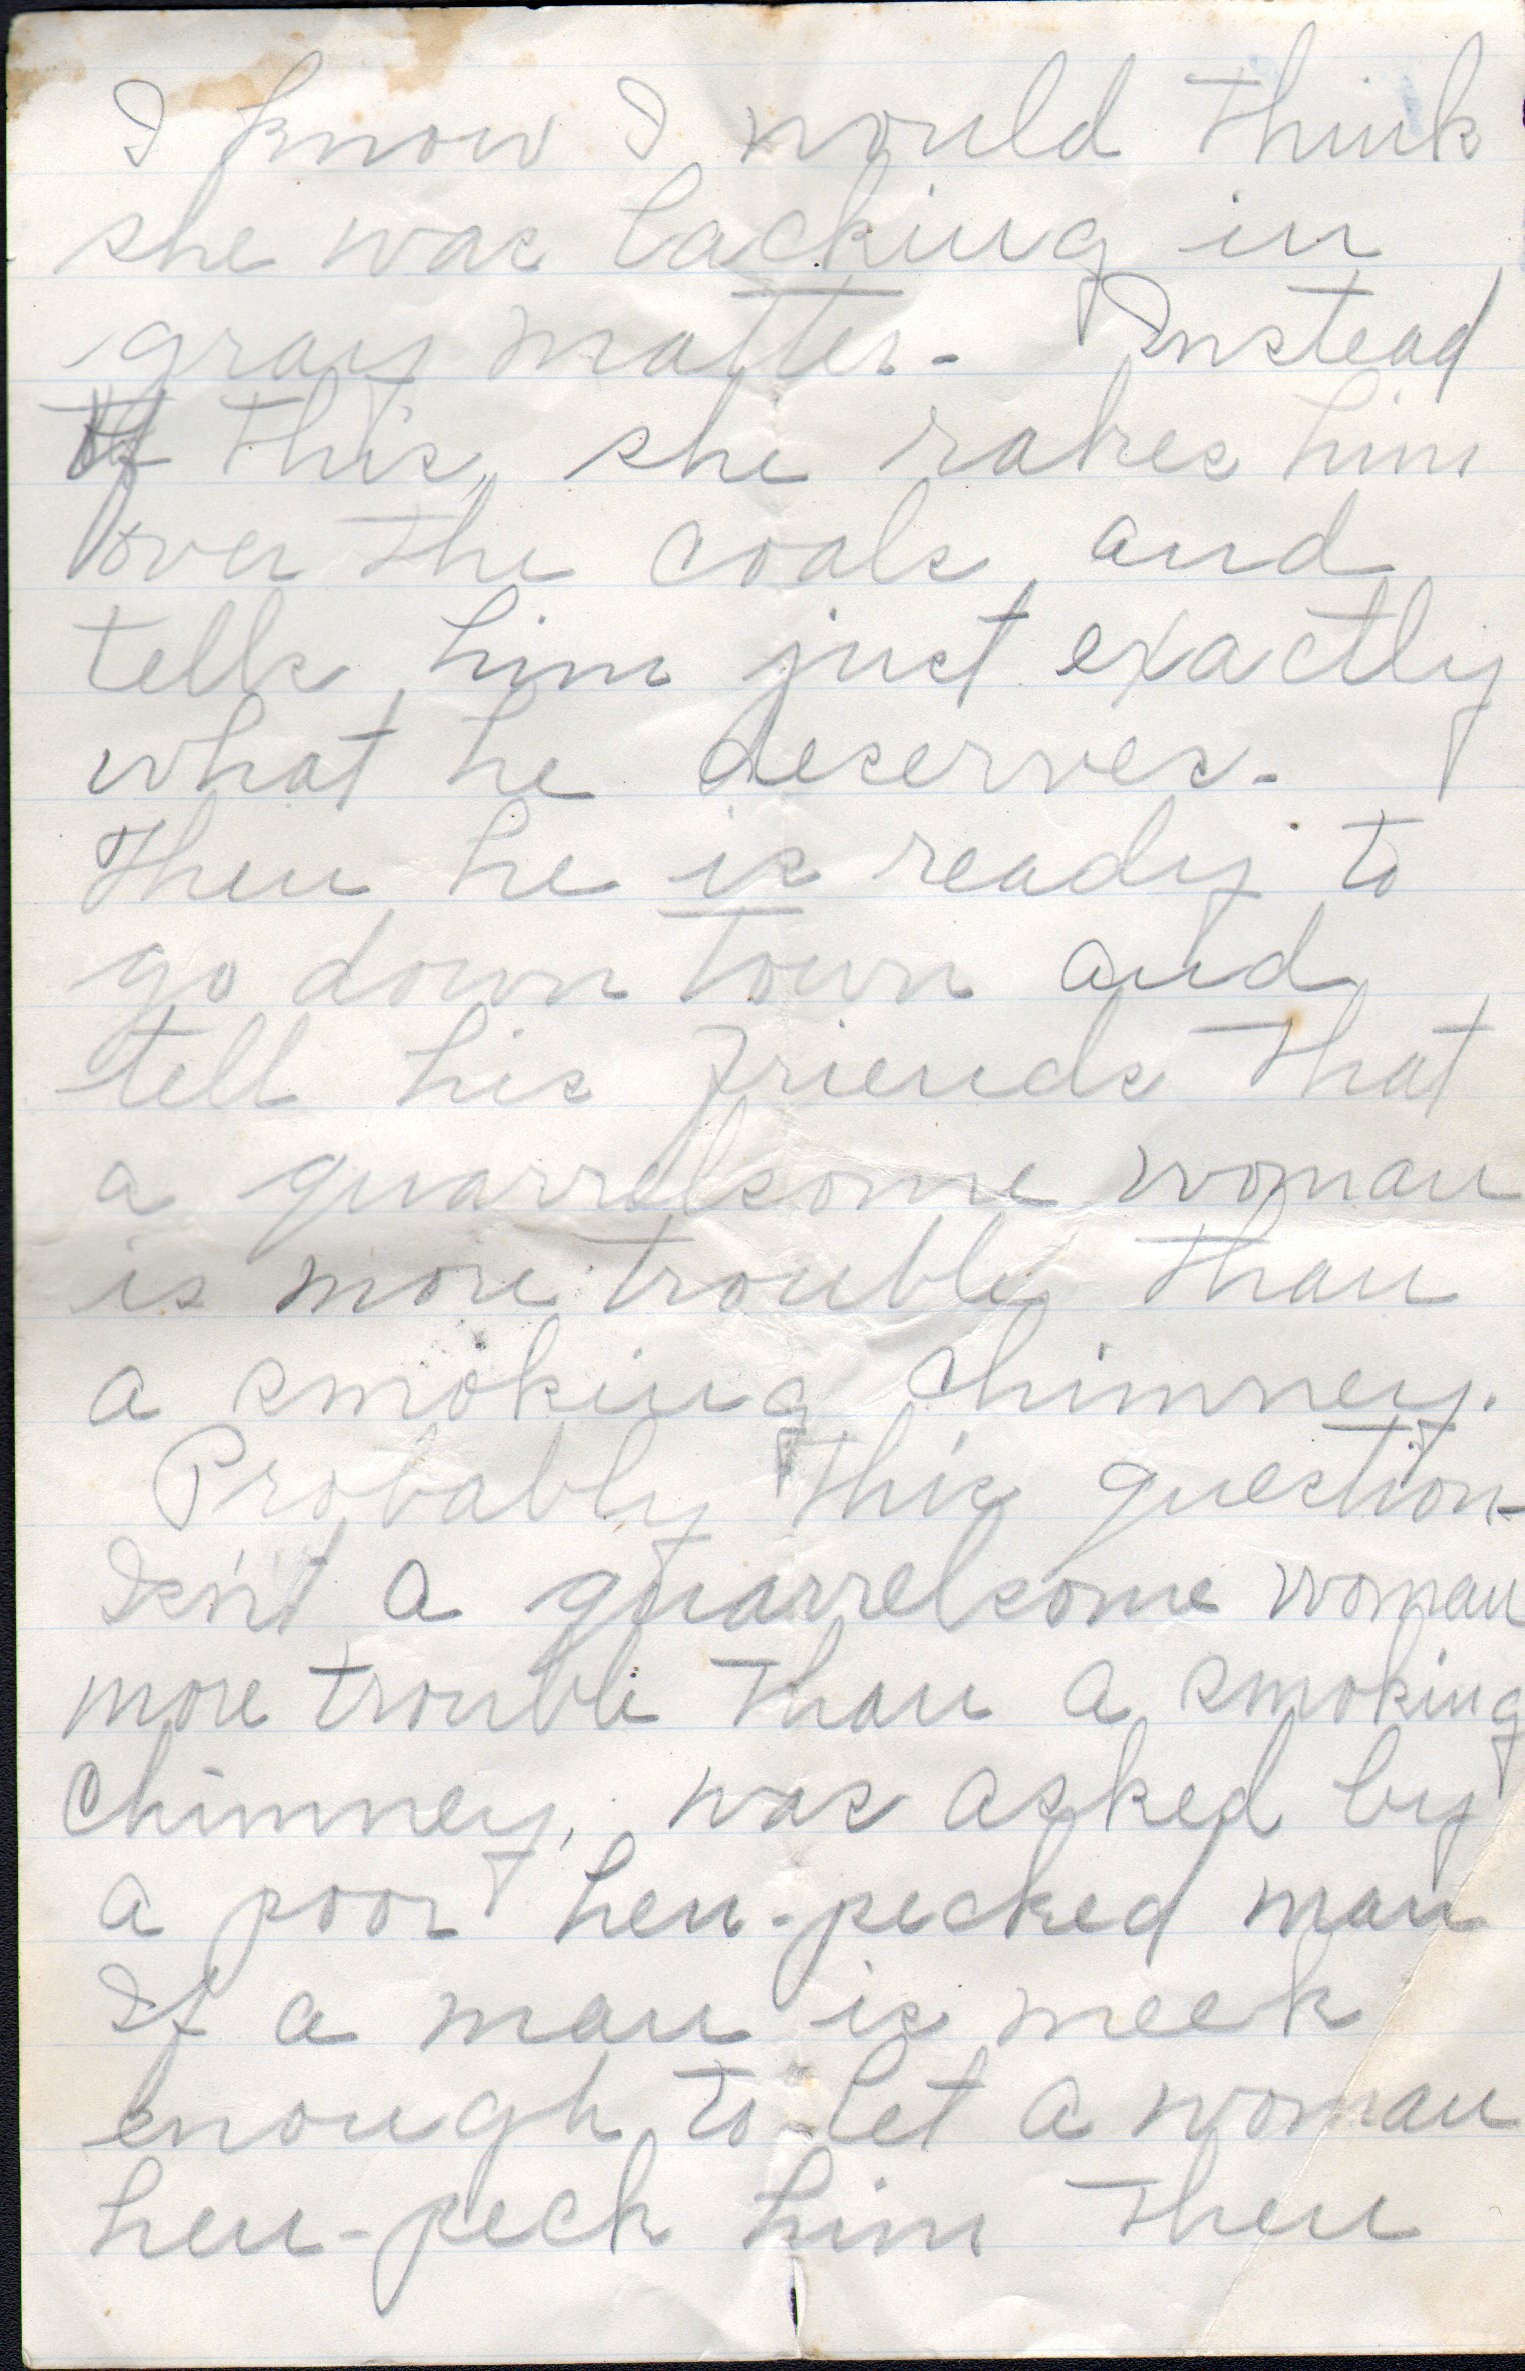 I know I would think
she was lacking in
gray matter. Instead
of this, she rakes him
over the coals, and
tells him just exactly
what he deserves.
Then he is ready to
go down town and
tell his friends that
a quarrelsome woman
is more trouble than
a smoking chimney.
Probably this question-
Isn't a quarrelsome woman
more trouble than a smoking
chimney, was asked by
a poor hen-pecked man
If a man is meek
enough to let a woman
hen-peck him then